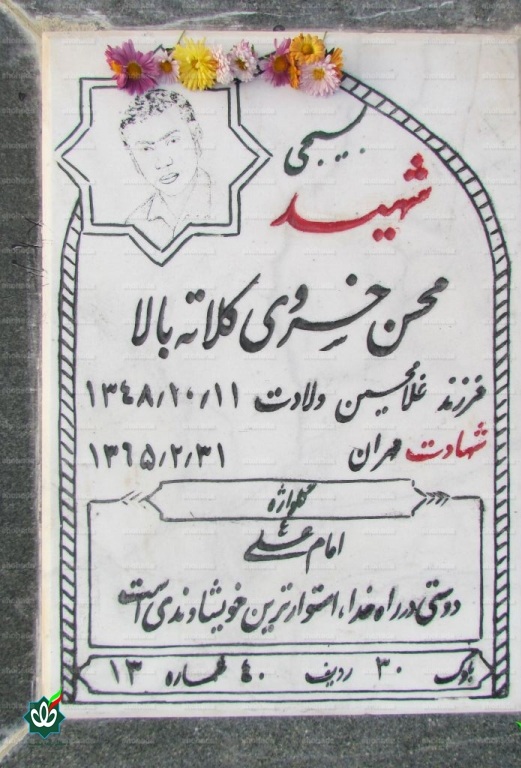 بسیجی
شهید
محسن خسروی کلاته بالا
فرزند غلامحسین ولادت ۱۳٤۸/۲۰/۱۱
شهادت مهران ۱۳٦۵/۲/۳۱
گلواژه
امام علی ع
دوستی در راه خدا، استوارترین خویشاوندی است
بلوک ۳۰ ردیف ٤۰ شماره ۱۳